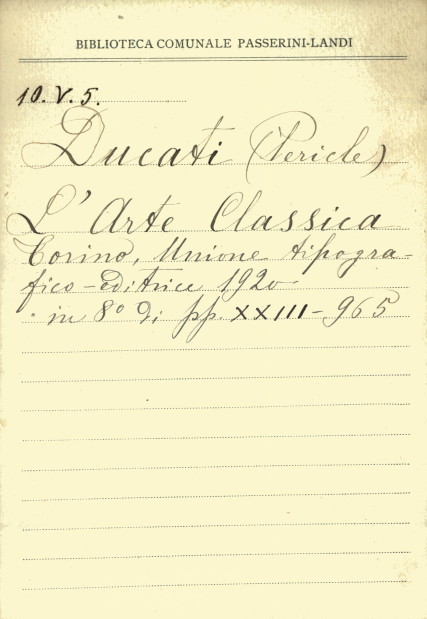 BIBLIOTECA COMUNALE PASSERINI-LANDI
10.V.5.
Ducati (Pericle)
L'Arte Classica
Torino, Unione tipogra-
fico-editrice 1920
in 8° di pp. XXIII-965